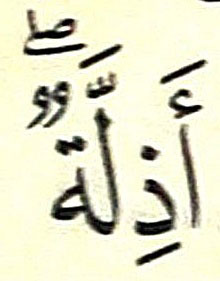 أَذِلَّةٌۖ